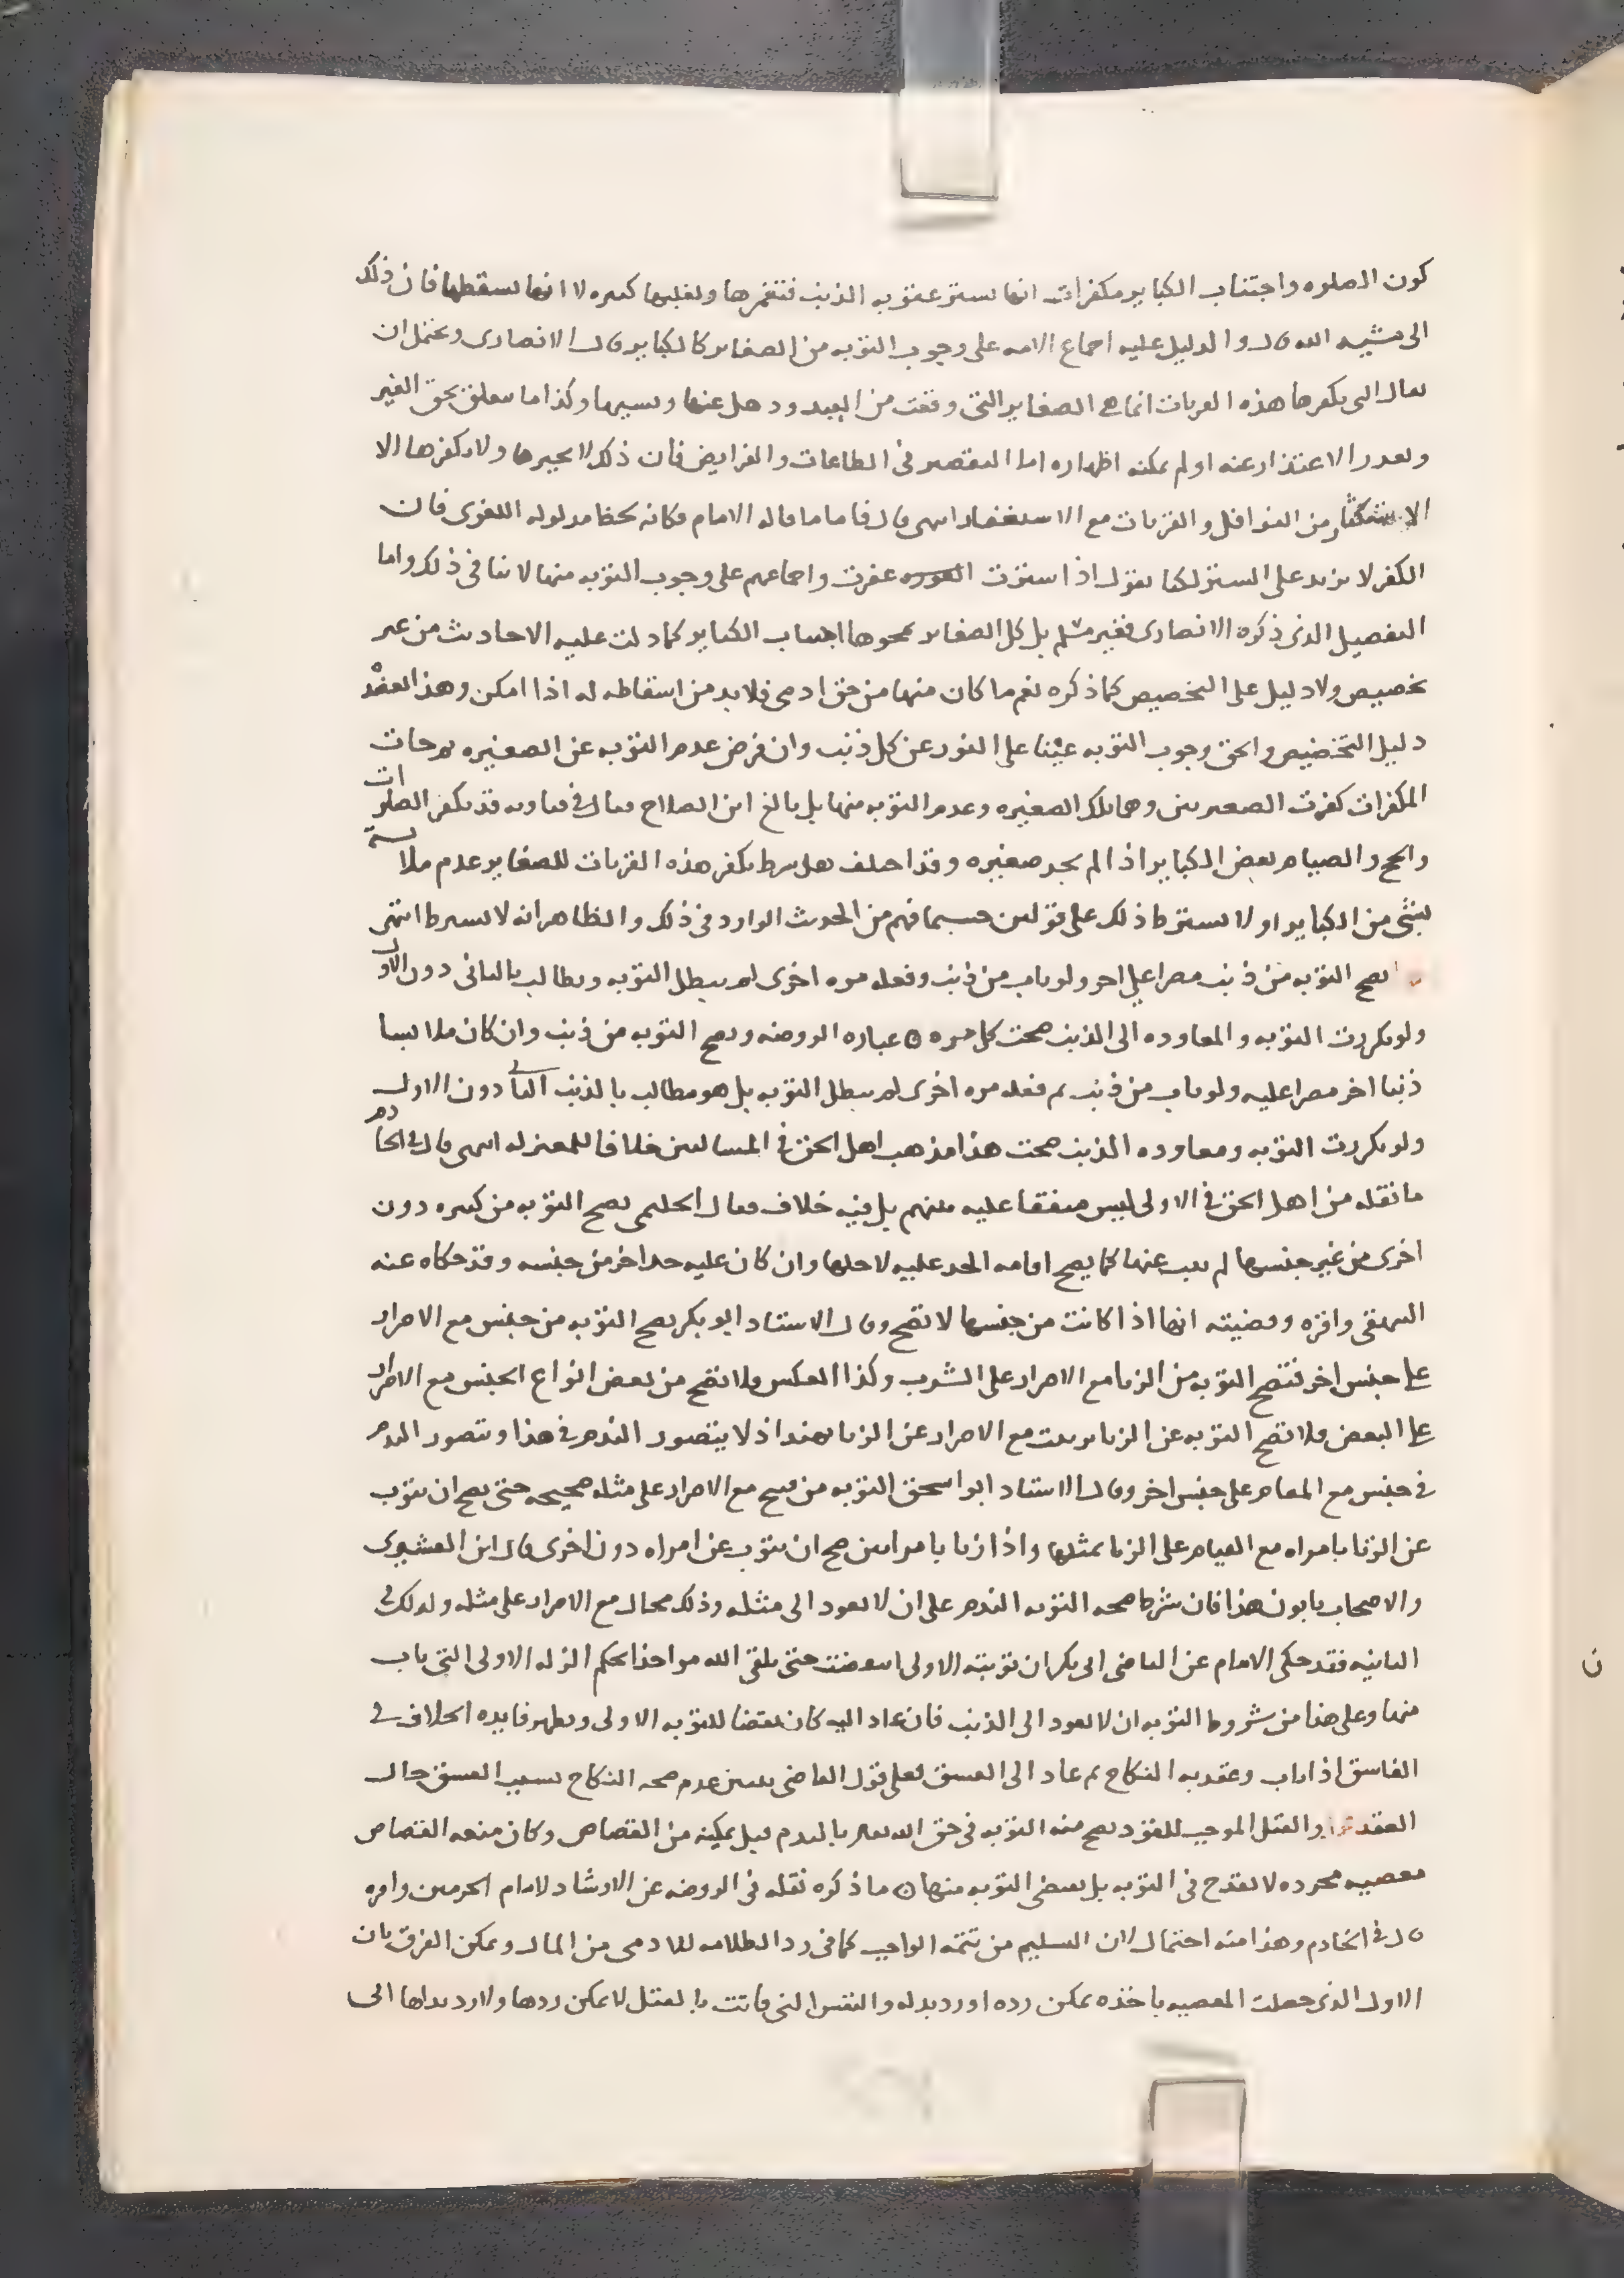 كون الصلوه واجتناب الكباير مكفرات انها تستر عقوبه الذنب فتغمرها وتغلبها كثره لا انها تسقطها فان ذلك
الى مشيه الله قال والدليل عليه اجماع الامه على وجوب التوبه من الصغاير كالكباير قال الانصارى ويحتمل ان
يقال التى يكفرها هذه القربات انما هى الصغاير التى وقعت من العبد وذهل عنها ونسيها وكذا ما يتعلق بحق الغير
وتعذر الاعتذار عنه او لم يمكنه اظهاره اما التقصير فى الطاعات والفرايض فان ذلك لا يجبرها ولا يكفرها الا
الاستكثار من النوافل والقربات مع الاستغفار انتهى قال فاما ما قاله الامام فكانه لحظ مدلوله اللغوى فان
الكفر لا يزيد على الستر لكنا نقول اذا سترت غفرت واجماعهم على وجوب التوبه منها لا ينافى ذلك واما
التفصيل الذى ذكره الانصارى فغير مسلم بل كل الصغاير يمحوها اجتناب الكباير كما دلت عليه الاحاديث من غير
تخصيص ولا دليل على التخصيص كما ذكره نعم ما كان منها من حق ادمى فلا بد من اسقاطه له اذا امكن وهذا لفقد
دليل التخصيص والحق وجوب التوبه عينا على الفور عن كل ذنب وان فرض عدم التوبه عن الصغيره ثم جات
المكفرات كفرت الصغيرتين وهما تلك الصغيره وعدم التوبه منها بل بالغ ابن الصلاح فقال فى فتاويه قد يكفر الصلوات
والحج والصيام بعض الكباير اذا لم يجد صغيره وقد اختلف هل شرط تكفير هذه القربات للصغاير عدم ملابسة
لشئ من الكباير او لا يشترط ذلك على قولين حسبما فهم من الحديث الوارد فى ذلك والظاهر انه لا يشترط انتهى
تصح التوبه من ذنب مصرا على اخر ولو تاب من ذنب وفعله مره اخرى لم يبطل التوبه ويطالب بالثانى دون الاول
ولو تكررت التوبه والمعاوده الى الذنب صحت كل مره ۞ عباره الروضه وتصح التوبه من ذنب وان كان ملابسا
ذنبا اخر مصرا عليه ولو تاب من ذنب ثم فعله مره اخرى لم يبطل التوبه بل هو مطالب بالذنب الثانى دون الاول
ولو تكررت التوبه ومعاوده الذنب صحت هذا مذهب اهل الحق فى المسالتين خلافا للمعتزله انتهى قال فى الخادم
ما نقله من اهل الحق فى الاولى ليس متفقا عليه بينهم بل فيه خلاف فقال الحليمى تصح التوبه من كبيره دون
اخرى من غير جنسها لم يتب عنها كما يصح اقامه الحد عليه لاجلها وان كان عليه حد اخر من جنسه وقد حكاه عنه
البيهقى واقره وقضيته انها اذا كانت من جنسها لا تصح وقال الاستاد ابو بكر تصح التوبه من جنس مع الاصرار
على جنس اخر فتصح التوبه من الزنا مع الاصرار على الشرب وكذا العكس ولا تصح من بعض انواع الجنس مع الاصرار
على البعض فلا تصح التوبه عن الزنا بزينب مع الاصرار عن الزنا بهند اذ لا يتصور الندم فى هذا ويتصور الندم
فى جنس مع المقام على جنس اخر وقال الاستاد ابو اسحق التوبه من قبيح مع الاصرار على مثله صحيحه حتى يصح ان يتوب
عن الزنا بامراه مع القيام على الزنا بمثلها واذا زنا بامراتين صح ان يتوب عن امراه دون اخرى قال ابن القشيرى
والاصحاب يابون هذا فان شرط صحه التوبه الندم على ان لا يعود الى مثله وذلك محال مع الاصرار على مثله وكذلك فى
الثانيه فقد حكى الامام عن القاضى ابى بكر ان توبته الاولى انتقضت حتى يلقى الله مواخذا بحكم الزله الاولى التى تاب
منها وعلى هذا من شروط التوبه ان لا يعود الى الذنب فان عاد اليه كان نقضا للتوبه الاولى ويظهر فايده الخلاف فى
الفاسق اذا تاب وعقد به النكاح ثم عاد الى الفسق فعلى قول القاضى يتبين عدم صحه النكاح بسبب الفسق حال
العقد والقتل الموجب للقود تصح منه التوبه فى حق الله تعالى بالندم قبل تمكينه من القصاص وكان منعه القصاص
معصيه مجرده لا تقدح فى التوبه بل يقتضى التوبه منها ۞ ما ذكره نقله فى الروضه عن الارشاد لامام الحرمين واقره
قال فى الخادم وهذا منه احتمال لان التسليم من تتمه الواجب كما فى رد الظلامه للادمى من المال ويمكن الفرق بان
الاول الذى جعلت المعصيه باخذه يمكن رده او رد بدله والنفس التى فاتت بالقتل لا يمكن ردها ولا رد بدلها الى
ن